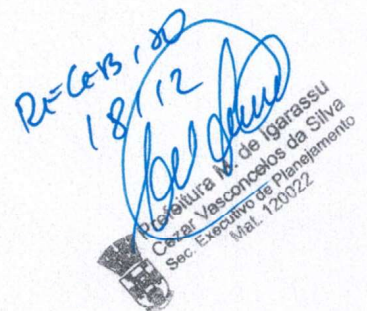 RECEBIDO
18/12
Prefeitura M. de Igarassu
Cezar Vasconcelos da Silva
Sec. Executivo de Planejamento
Mat. 120022